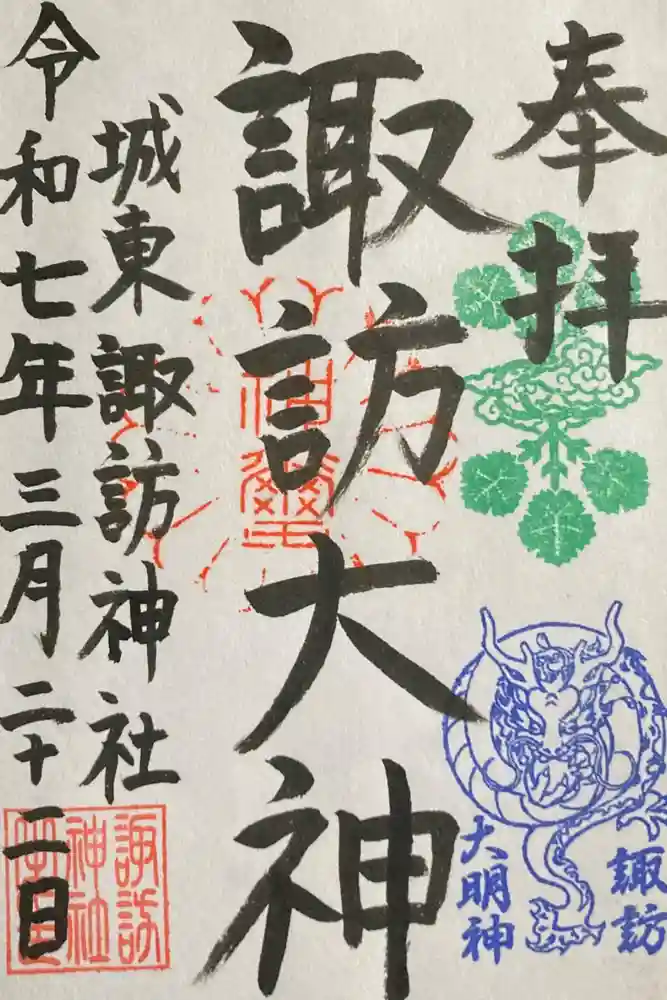 奉拝
諏訪大神
城東諏訪神社
令和七年三月二十二日
諏訪
大明神
神璽
諏訪
神社